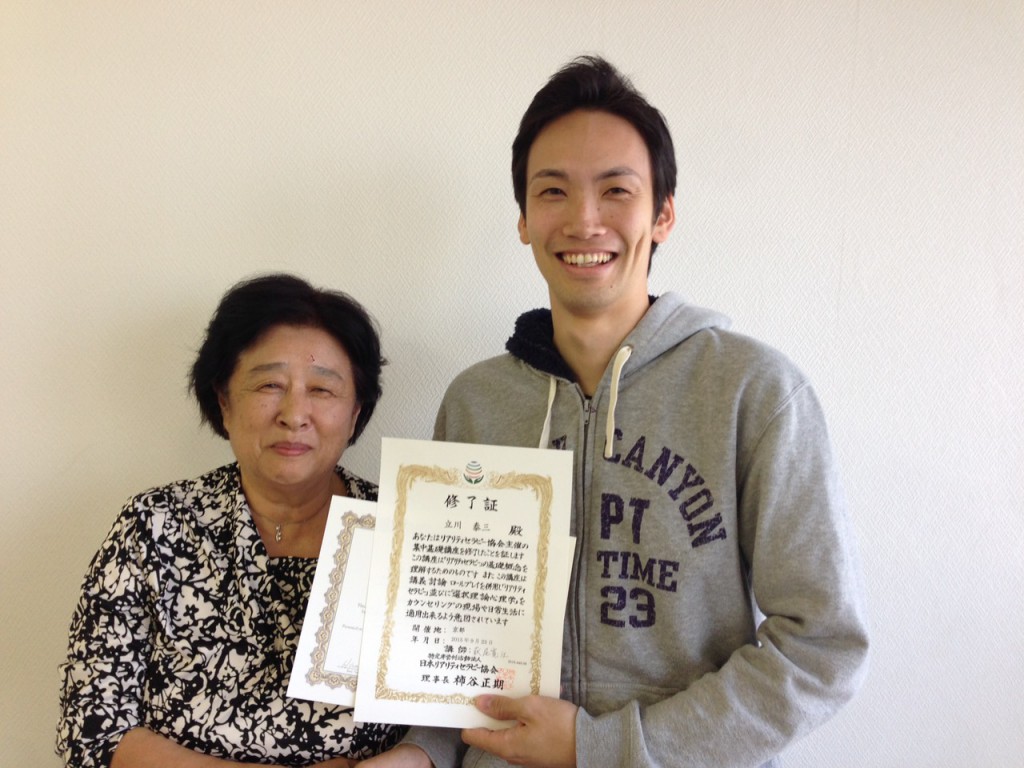 修了証
立川 泰三 殿
あなたはリアリティセラピー協会主催の
集中基礎講座を修了したことを証します
この講座は「リアリティセラピー」の基礎概念を
理解するためのものです また この講座は
講義 討論 ロールプレイを併用し「リアリティ
セラピー」並びに「選択理論心理学」を
カウンセリングの現場や日常生活に
適用出来るよう意図されています
開催地: 京都
年月日:
講師:
特定非営利活動法人
日本リアリティセラピー協会
理事長 柿谷正期
CANYON
PT
TIME
23